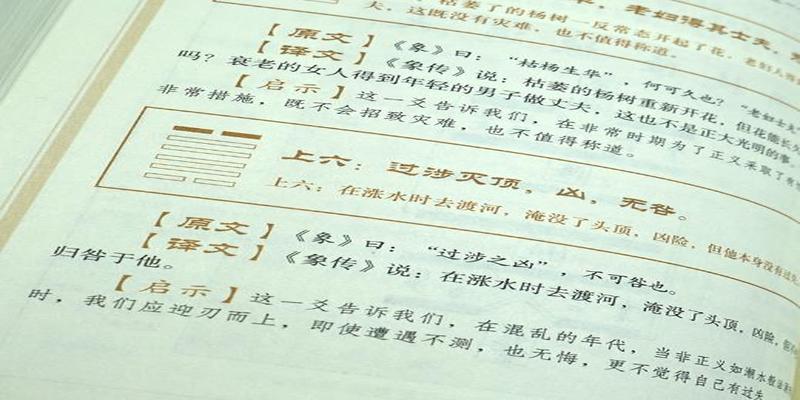 枯萎了的杨树一反常态开起了花,老妇人
夫,这既没有灾难,也不值得称道。
【原文】《象》曰:“枯杨生华”,何可久也?“老妇士夫”
【译文】《象传》说:枯萎的杨树重新开花,但花能长久
吗?衰老的女人得到年轻的男子做丈夫,这也不是正大光明的事。
【启示】这一爻告诉我们,在非常时期为了正义采取了有
非常措施,既不会招致灾难,也不值得称道。
上六:过涉灭顶,凶,无咎。
上六:在涨水时去渡河,淹没了头顶,凶险,但他本身没有过失
【原文】《象》曰:“过涉之凶”,不可咎也。
【译文】《象传》说:在涨水时去渡河,淹没了头顶,凶险,
归咎于他。
【启示】这一爻告诉我们,在混乱的年代,当非正义如潮水般
时,我们应迎刃而上,即使遭遇不测,也无悔,更不觉得自己有过失